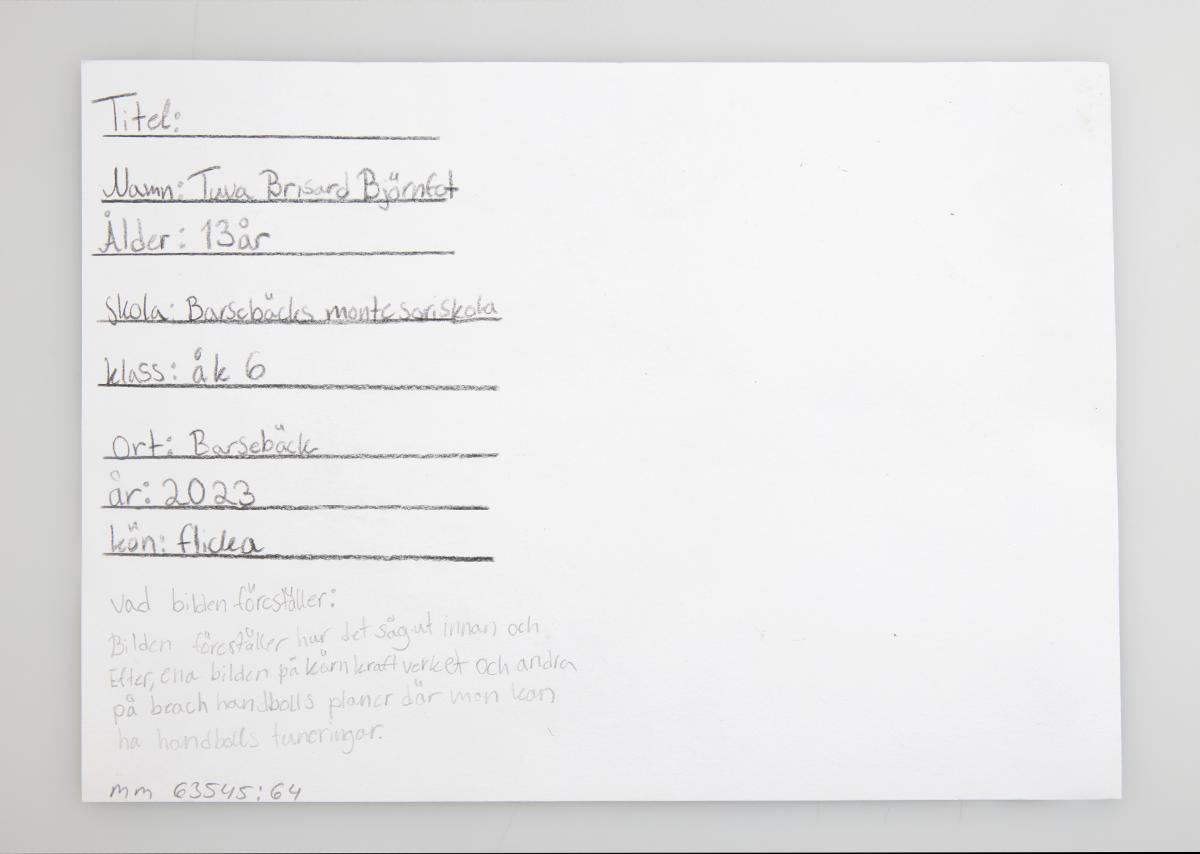 Titel:
Namn: Tuva Brisard Björnfot
Ålder: 13år
skola: Barsebäcks montesoriskola
klass: åk 6
ort: Barsebäck
år: 2023
kön: flicka
vad bilden föreställer:
Bilden föreställer hur det såg ut innan och
Efter, ena bilden på kärnkraftverket och andra
på beach handbolls planer där man kan
ha handbolls tuneringar.
mm 63545:64